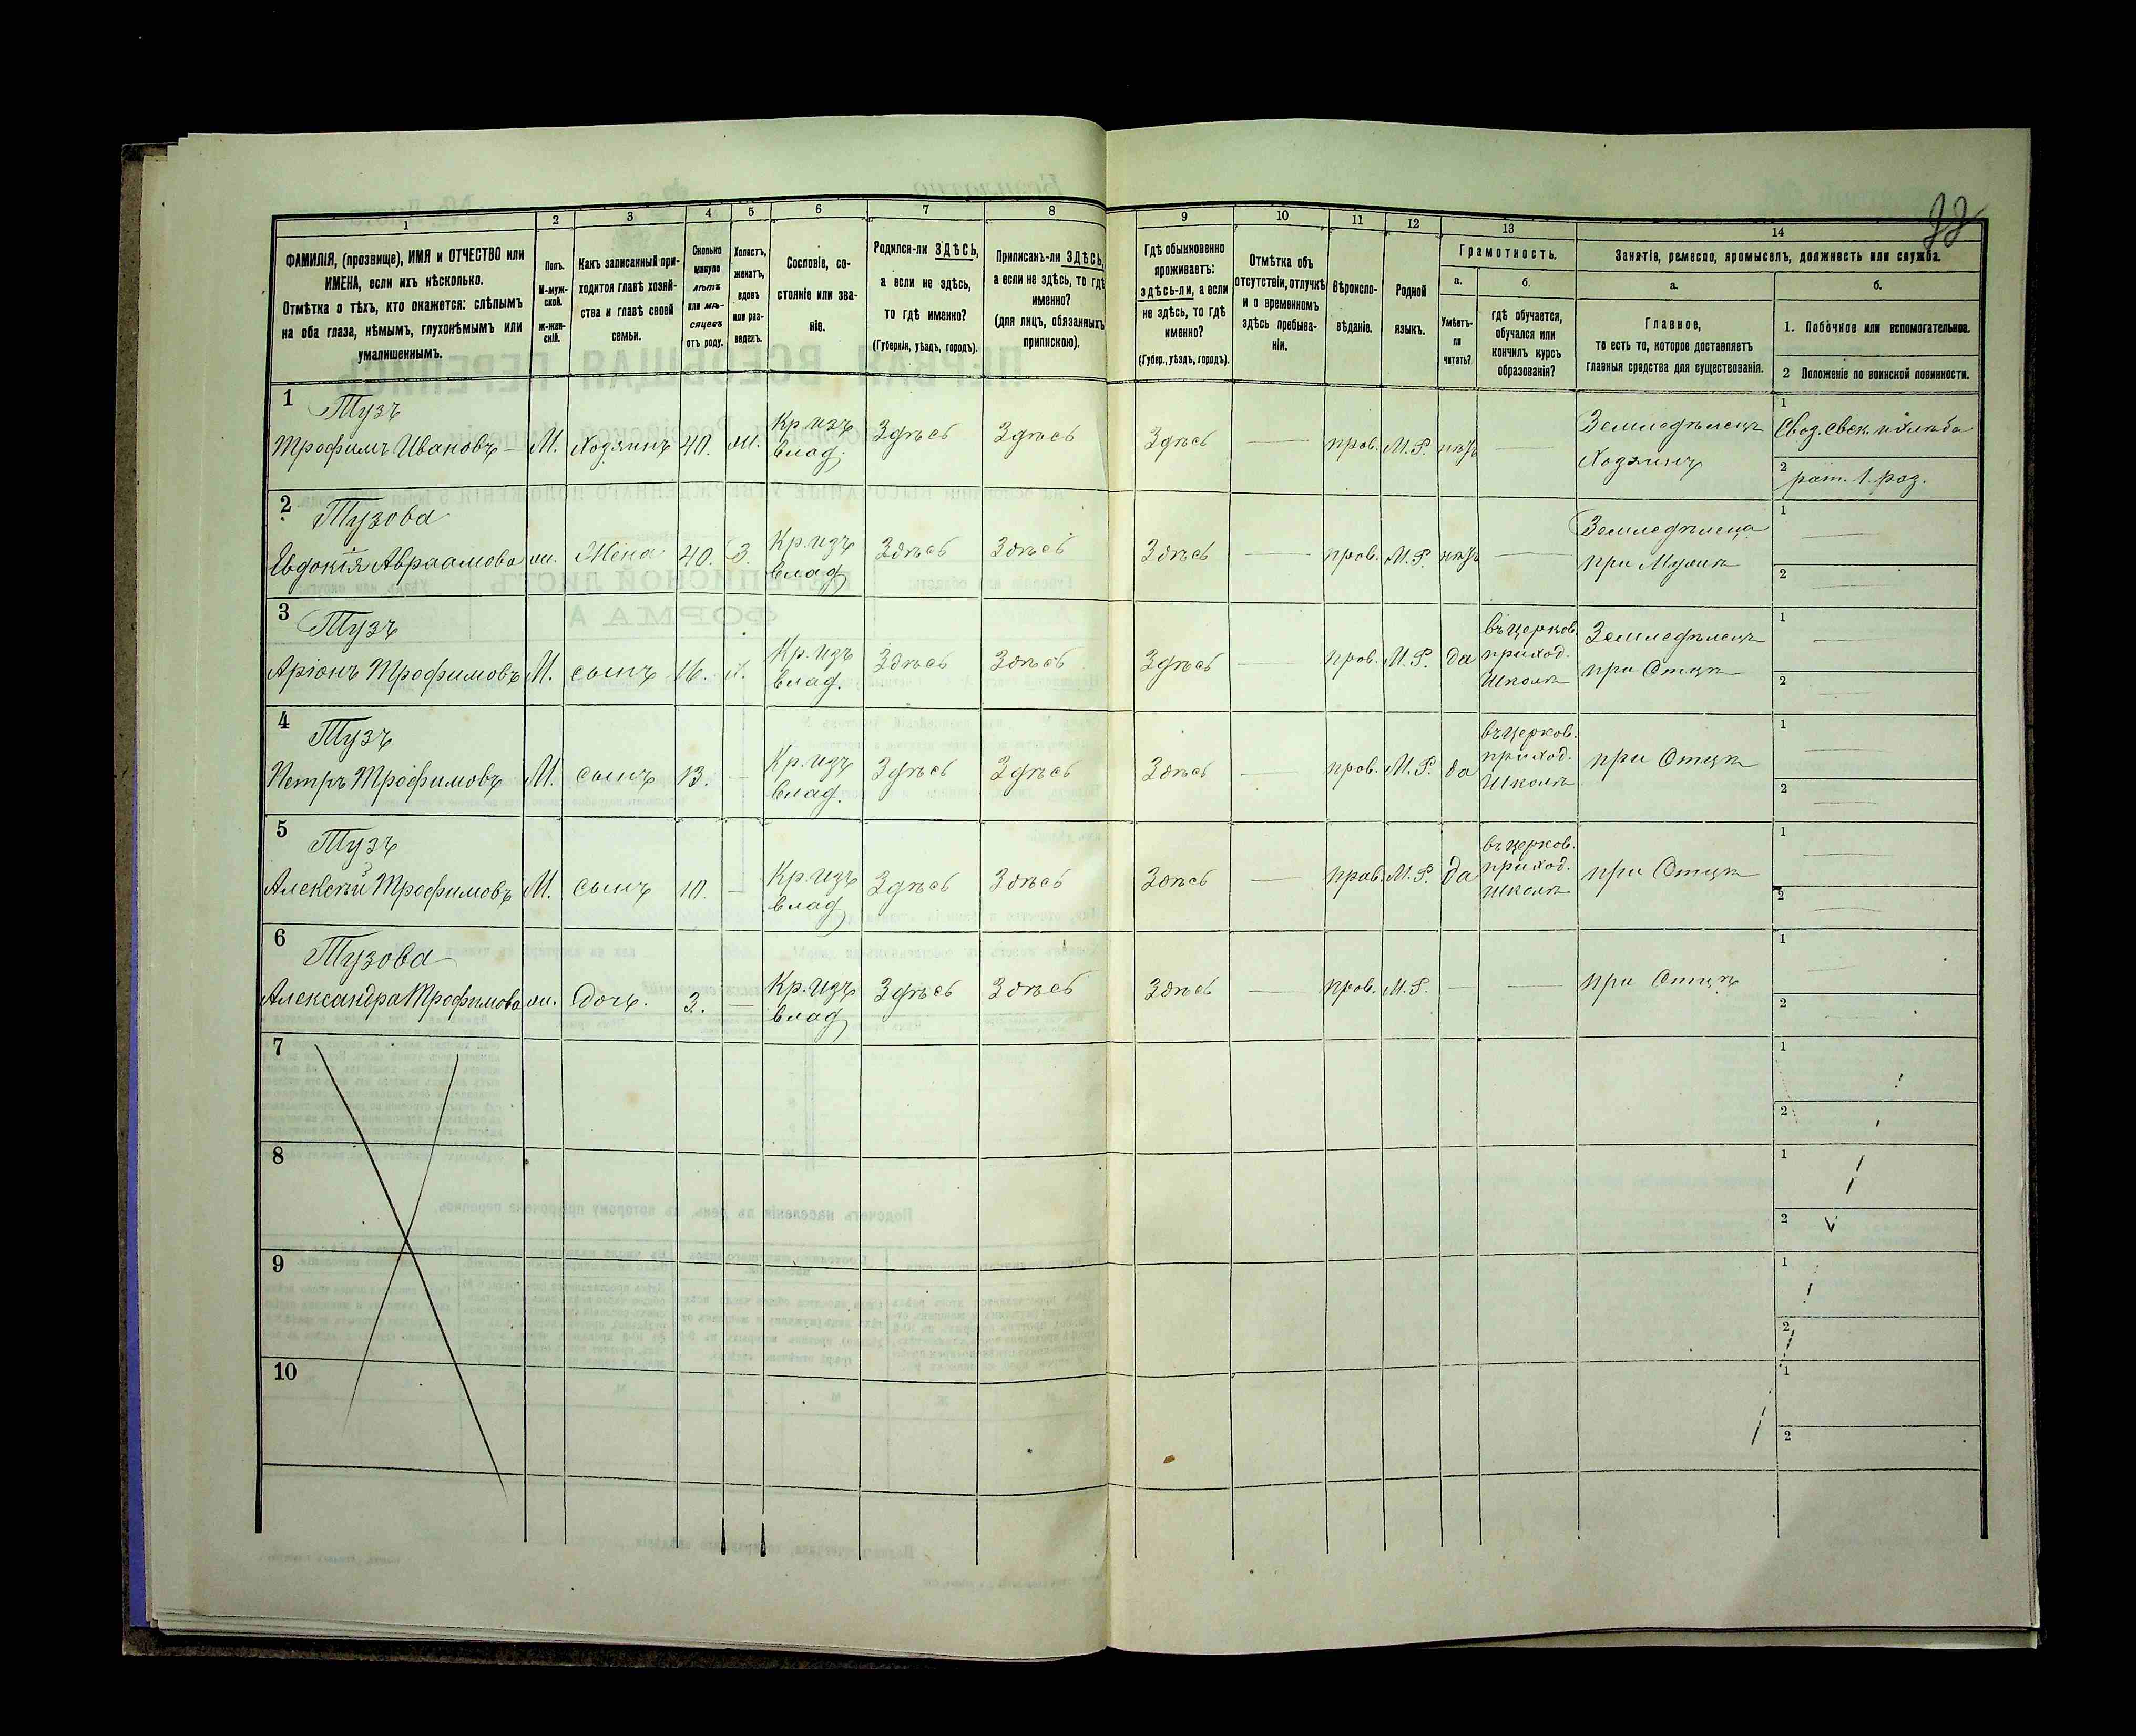 22
1 2 3 4 5 6 7 8 9 10 11 12 13 14
ФАМИЛІЯ, (прозвище), ИМЯ и ОТЧЕСТВО или
ИМЕНА, если ихъ нѣсколько.
Отмѣтка о тѣхъ, кто окажется: слѣпымъ
на оба глаза, нѣмымъ, глухонѣмымъ или
умалишеннымъ.
Полъ.
М-муж-
ской.
Ж-жен-
скій.
Какъ записанный при-
ходится главѣ хозяй-
ства и главѣ своей
семьи.
Сколько
минуло
лѣтъ
или мѣ-
сяцевъ
отъ роду.
Холостъ,
женатъ,
вдовъ
или раз-
веденъ.
Сословіе, со-
стояніе или зва-
ніе.
Родился-ли ЗДѢСЬ,
а если не здѣсь,
то гдѣ именно?
(Губернія, уѣздъ, городъ).
Приписанъ-ли ЗДѢСЬ,
а если не здѣсь, то гдѣ
именно?
(для лицъ, обязанныхъ
припискою).
Гдѣ обыкновенно
проживаетъ:
здѣсь-ли, а если
не здѣсь, то гдѣ
именно?
(Губер., уѣздъ, городъ).
Отмѣтка объ
отсутствіи, отлучкѣ
и о временномъ
здѣсь пребыва-
ніи.
Вѣроиспо-
вѣданіе.
Родной
языкъ.
Грамотность.
а.
Умѣетъ-
ли
читать?
б.
гдѣ обучается,
обучался или
кончилъ курсъ
образованія?
Занятіе, ремесло, промыселъ, должность или служба.
а.
Главное,
то есть то, которое доставляетъ
главныя средства для существованія.
б.
1. Побочное или вспомогательное.
2 Положеніе по воинской повинности.
1
Тузъ
Трофимъ Ивановъ — М. Хозяинъ 40. ж. Кр. изъ влад. Здѣсь Здѣсь Здѣсь — прав. М. Р. нѣтъ — Земледѣлецъ Хозяинъ
1 Свод. свек. и хлѣба
2 рат. 1. раз.
2
Тузова
Евдокія Авраамова ж. Жена 40. З. Кр. изъ влад. Здѣсь Здѣсь Здѣсь — прав. М. Р. нѣтъ — Земледѣлица при Мужѣ
1 —
2 —
3
Тузъ
Аріонъ Трофимовъ М. сынъ 16. х. Кр. изъ влад. Здѣсь Здѣсь Здѣсь — прав. М. Р. да въ церков. приход. Школѣ Земледѣлецъ при Отцѣ
1 —
2 —
4
Тузъ
Петръ Трофимовъ М. сынъ 13. — Кр. изъ влад. Здѣсь Здѣсь Здѣсь — прав. М. Р. да въ церков. приход. Школѣ при Отцѣ
1 —
2 —
5
Тузъ
Алексѣй Трофимовъ М. сынъ 10. — Кр. изъ влад. Здѣсь Здѣсь Здѣсь — прав. М. Р. да въ церков. приход. Школѣ при Отцѣ
1 —
2 —
6
Тузова
Александра Трофимова ж. Дочь. 3. — Кр. изъ влад. Здѣсь Здѣсь Здѣсь — прав. М. Р. — — при Отцѣ
1 —
2 —
7
1
2
8
1
2
9
1
2
10
1
2